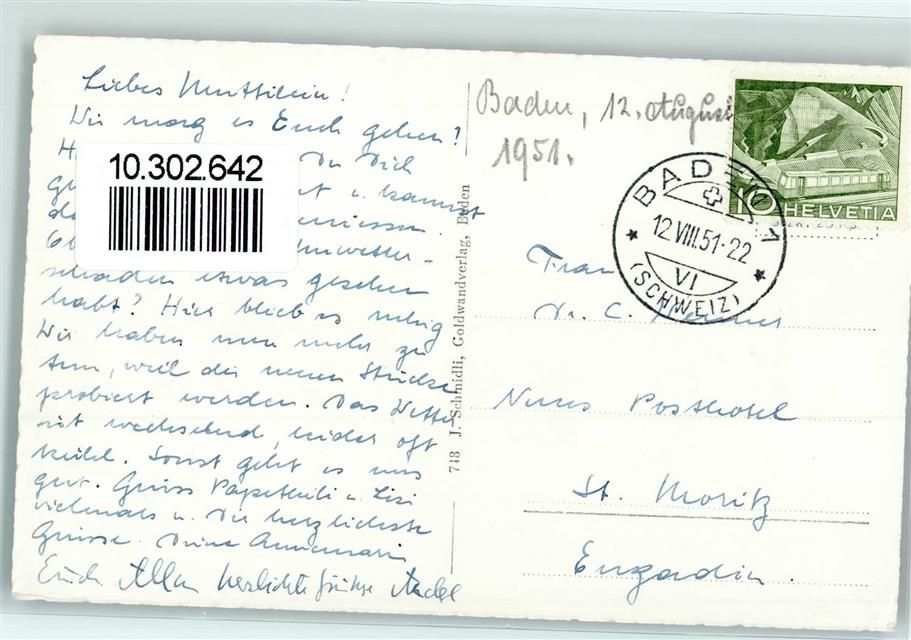 Liebes Muttilein!
Wie mag es Euch gehen?
Du Dich
u. kannst
geniessen.
Ob
schaden etwas gesehen
habt? Hier blieb es ruhig
Wir haben nun mehr zu
tun, weil die neuen Stücke
probiert werden. Das Wetter
ist wechselnd, leider oft
kühl. Sonst geht es uns
gut. Grüss u. Lisi
vielmals u. Dir herzlichste
Grüsse. Deine Annemarie
Euch Allen herzlichste Grüsse
10.302.642
748 J. Schmidli, Goldwandverlag, Baden
Baden, 12. August
1951.
BADEN 1
12.VIII.51-22
VI
(SCHWEIZ)
10 HELVETIA
Frau
Dr. C.
Neues Posthotel
St. Moritz
Engadin.